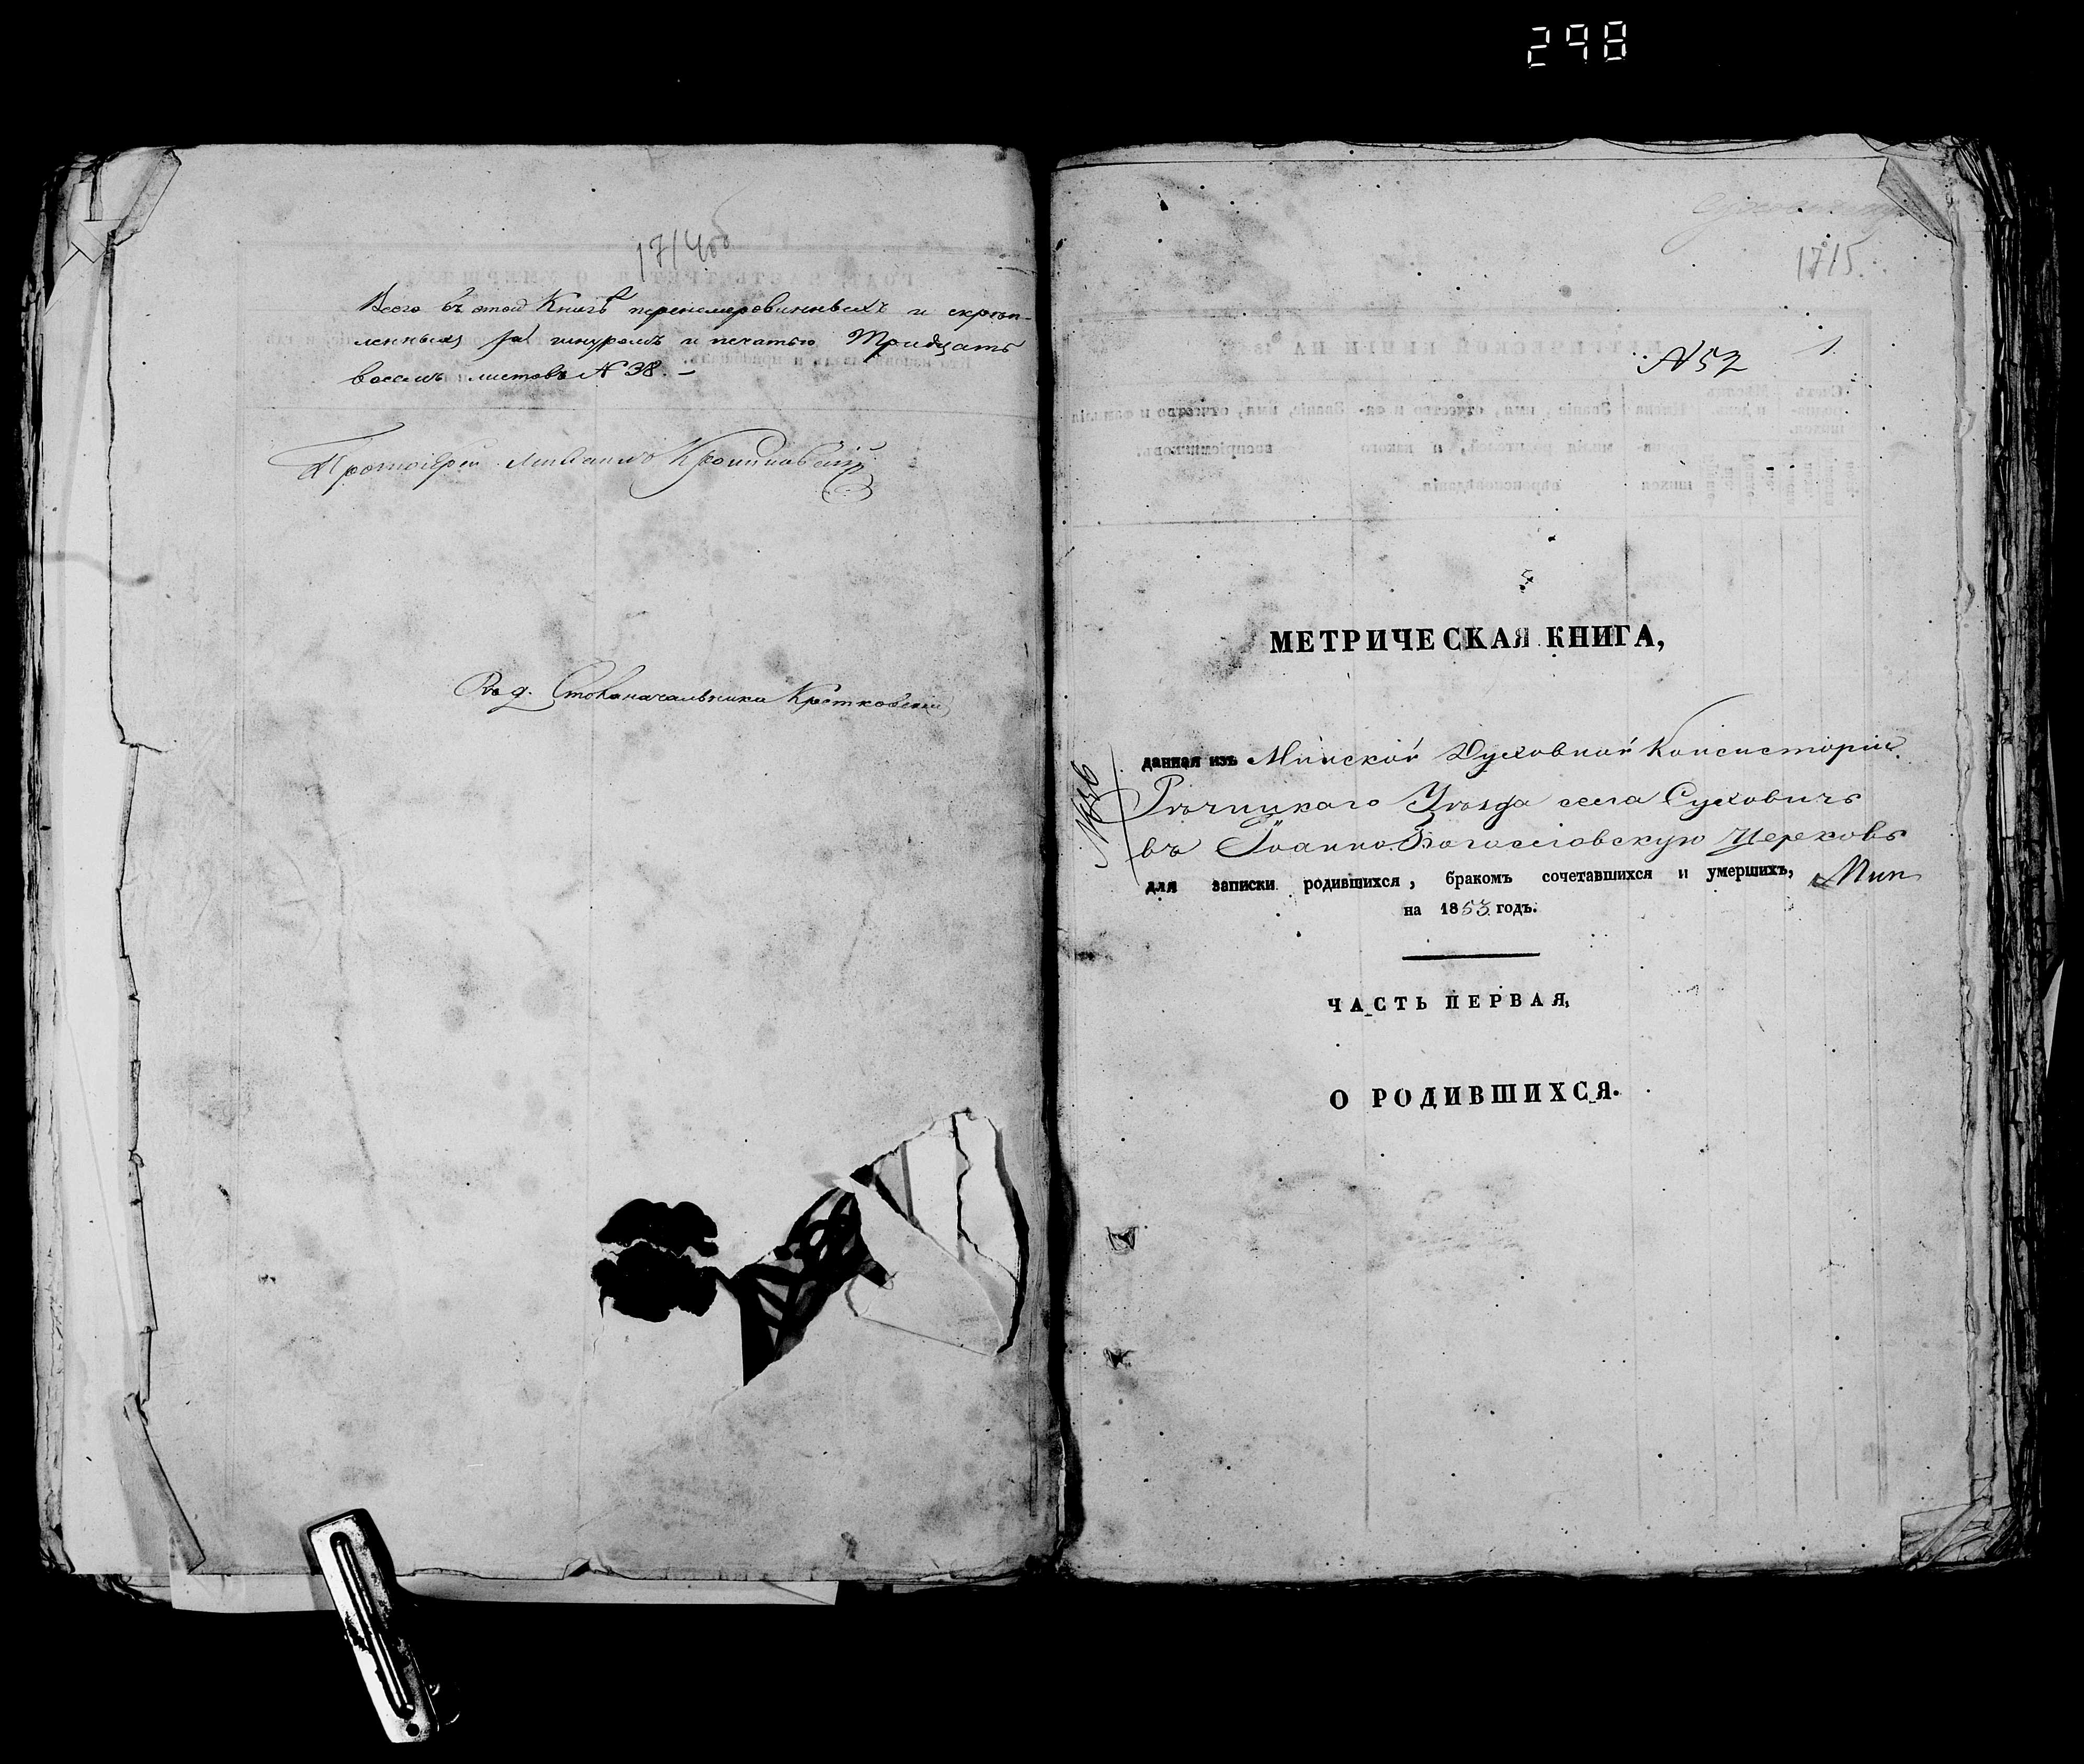 298
17140б
Всего въ этой Книгѣ перенумерованныхъ и скрѣп-
ленныхъ за шнуромъ и печатью Тридцать
восемь листовъ № 38. –
Протоіерей Михаилъ
Въ д. Столоначальника
1715
№ 52
1.
МЕТРИЧЕСКАЯ КНИГА,
данная изъ Минской Духовной Консисторіи
Рѣчицкаго Уѣзда села Суховичъ
въ Іоанно-Богословскую Церковь
для записки родившихся, бракомъ сочетавшихся и умершихъ,
на 1853 годъ.
ЧАСТЬ ПЕРВАЯ,
О РОДИВШИХСЯ.